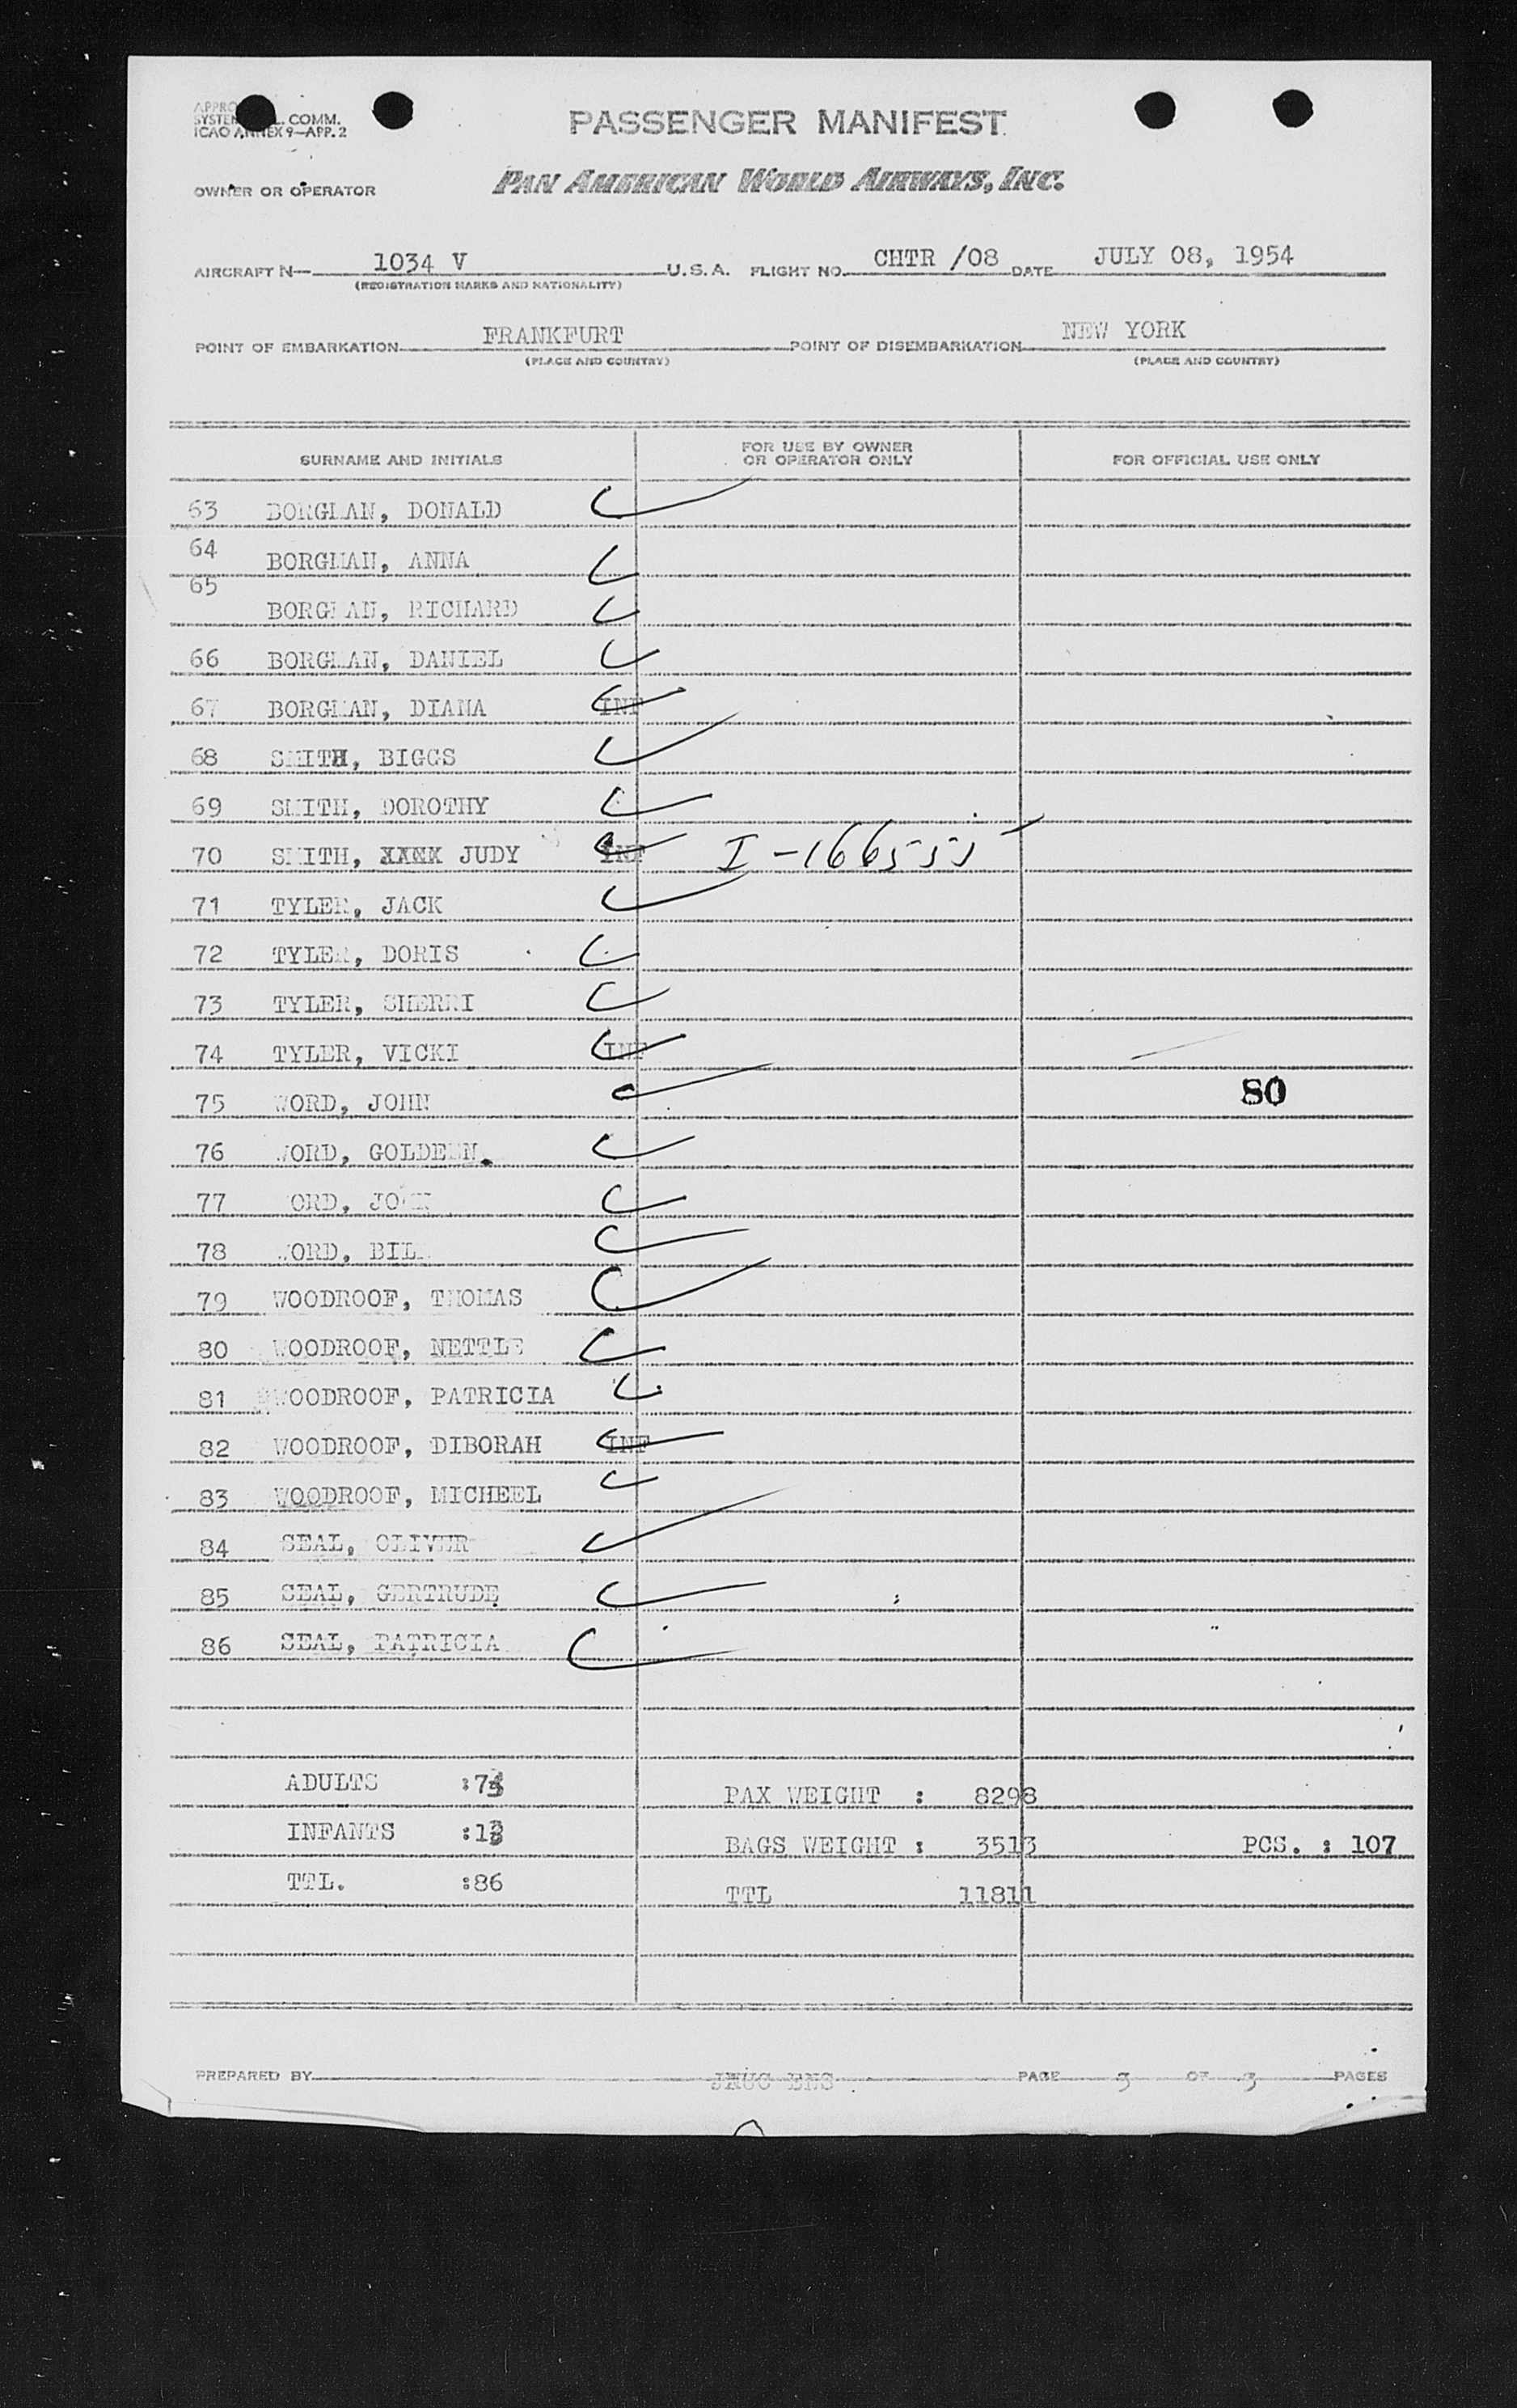 SYSTEM COMM.
ICAO ANNEX 9—APP. 2
PASSENGER MANIFEST
OWNER OR OPERATOR
PAN AMERICAN WORLD AIRWAYS, INC.
AIRCRAFT N— 1034 V U.S.A. FLIGHT NO. CHTR /08 DATE JULY 08, 1954
(REGISTRATION MARKS AND NATIONALITY)
POINT OF EMBARKATION FRANKFURT POINT OF DISEMBARKATION NEW YORK
(PLACE AND COUNTRY) (PLACE AND COUNTRY)
SURNAME AND INITIALS FOR USE BY OWNER OR OPERATOR ONLY FOR OFFICIAL USE ONLY
63 BORGMAN, DONALD
64 BORGMAN, ANNA
65 BORGMAN, RICHARD
66 BORGMAN, DANIEL
67 BORGMAN, DIANA INF
68 SMITH, BIGGS
69 SMITH, DOROTHY
70 SMITH, JUDY INF I-166555
71 TYLER, JACK
72 TYLER, DORIS
73 TYLER, SHERRI
74 TYLER, VICKI INF
75 WORD, JOHN 80
76 WORD, GOLDEEN
77 WORD,
78 WORD, BILL
79 WOODROOF, THOMAS
80 WOODROOF, NETTLE
81 WOODROOF, PATRICIA
82 WOODROOF, DIBORAH INF
83 WOODROOF, MICHEEL
84 SEAL, OLIVER
85 SEAL, GERTRUDE
86 SEAL, PATRICIA
ADULTS : PAX WEIGHT : 8298
INFANTS : BAGS WEIGHT : 3513 PCS. : 107
TTL. :86 TTL 11811
PREPARED BY PAGE 3 OF 3 PAGES